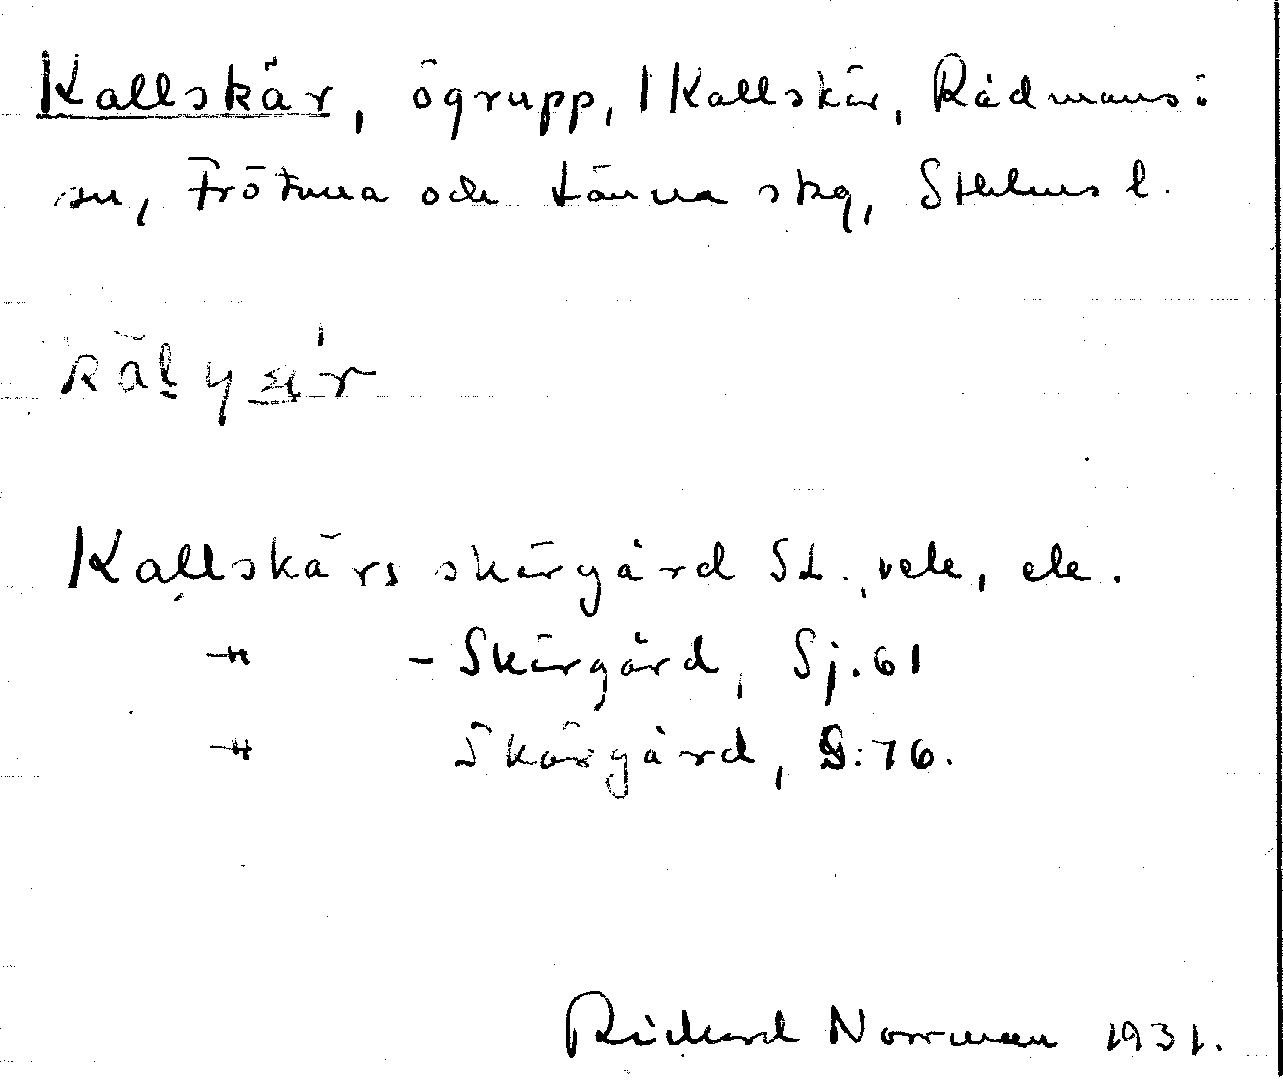 Kallskär, ögrupp, 1 Kallskär, Rådmansö
sn, Frötuna och Länna skg, Sthlms l.
Kallskärs skärgård
-"- - Skärgård, Sj. 61
-"- Skärgård, S:76.
Rickard Norrman 1931.